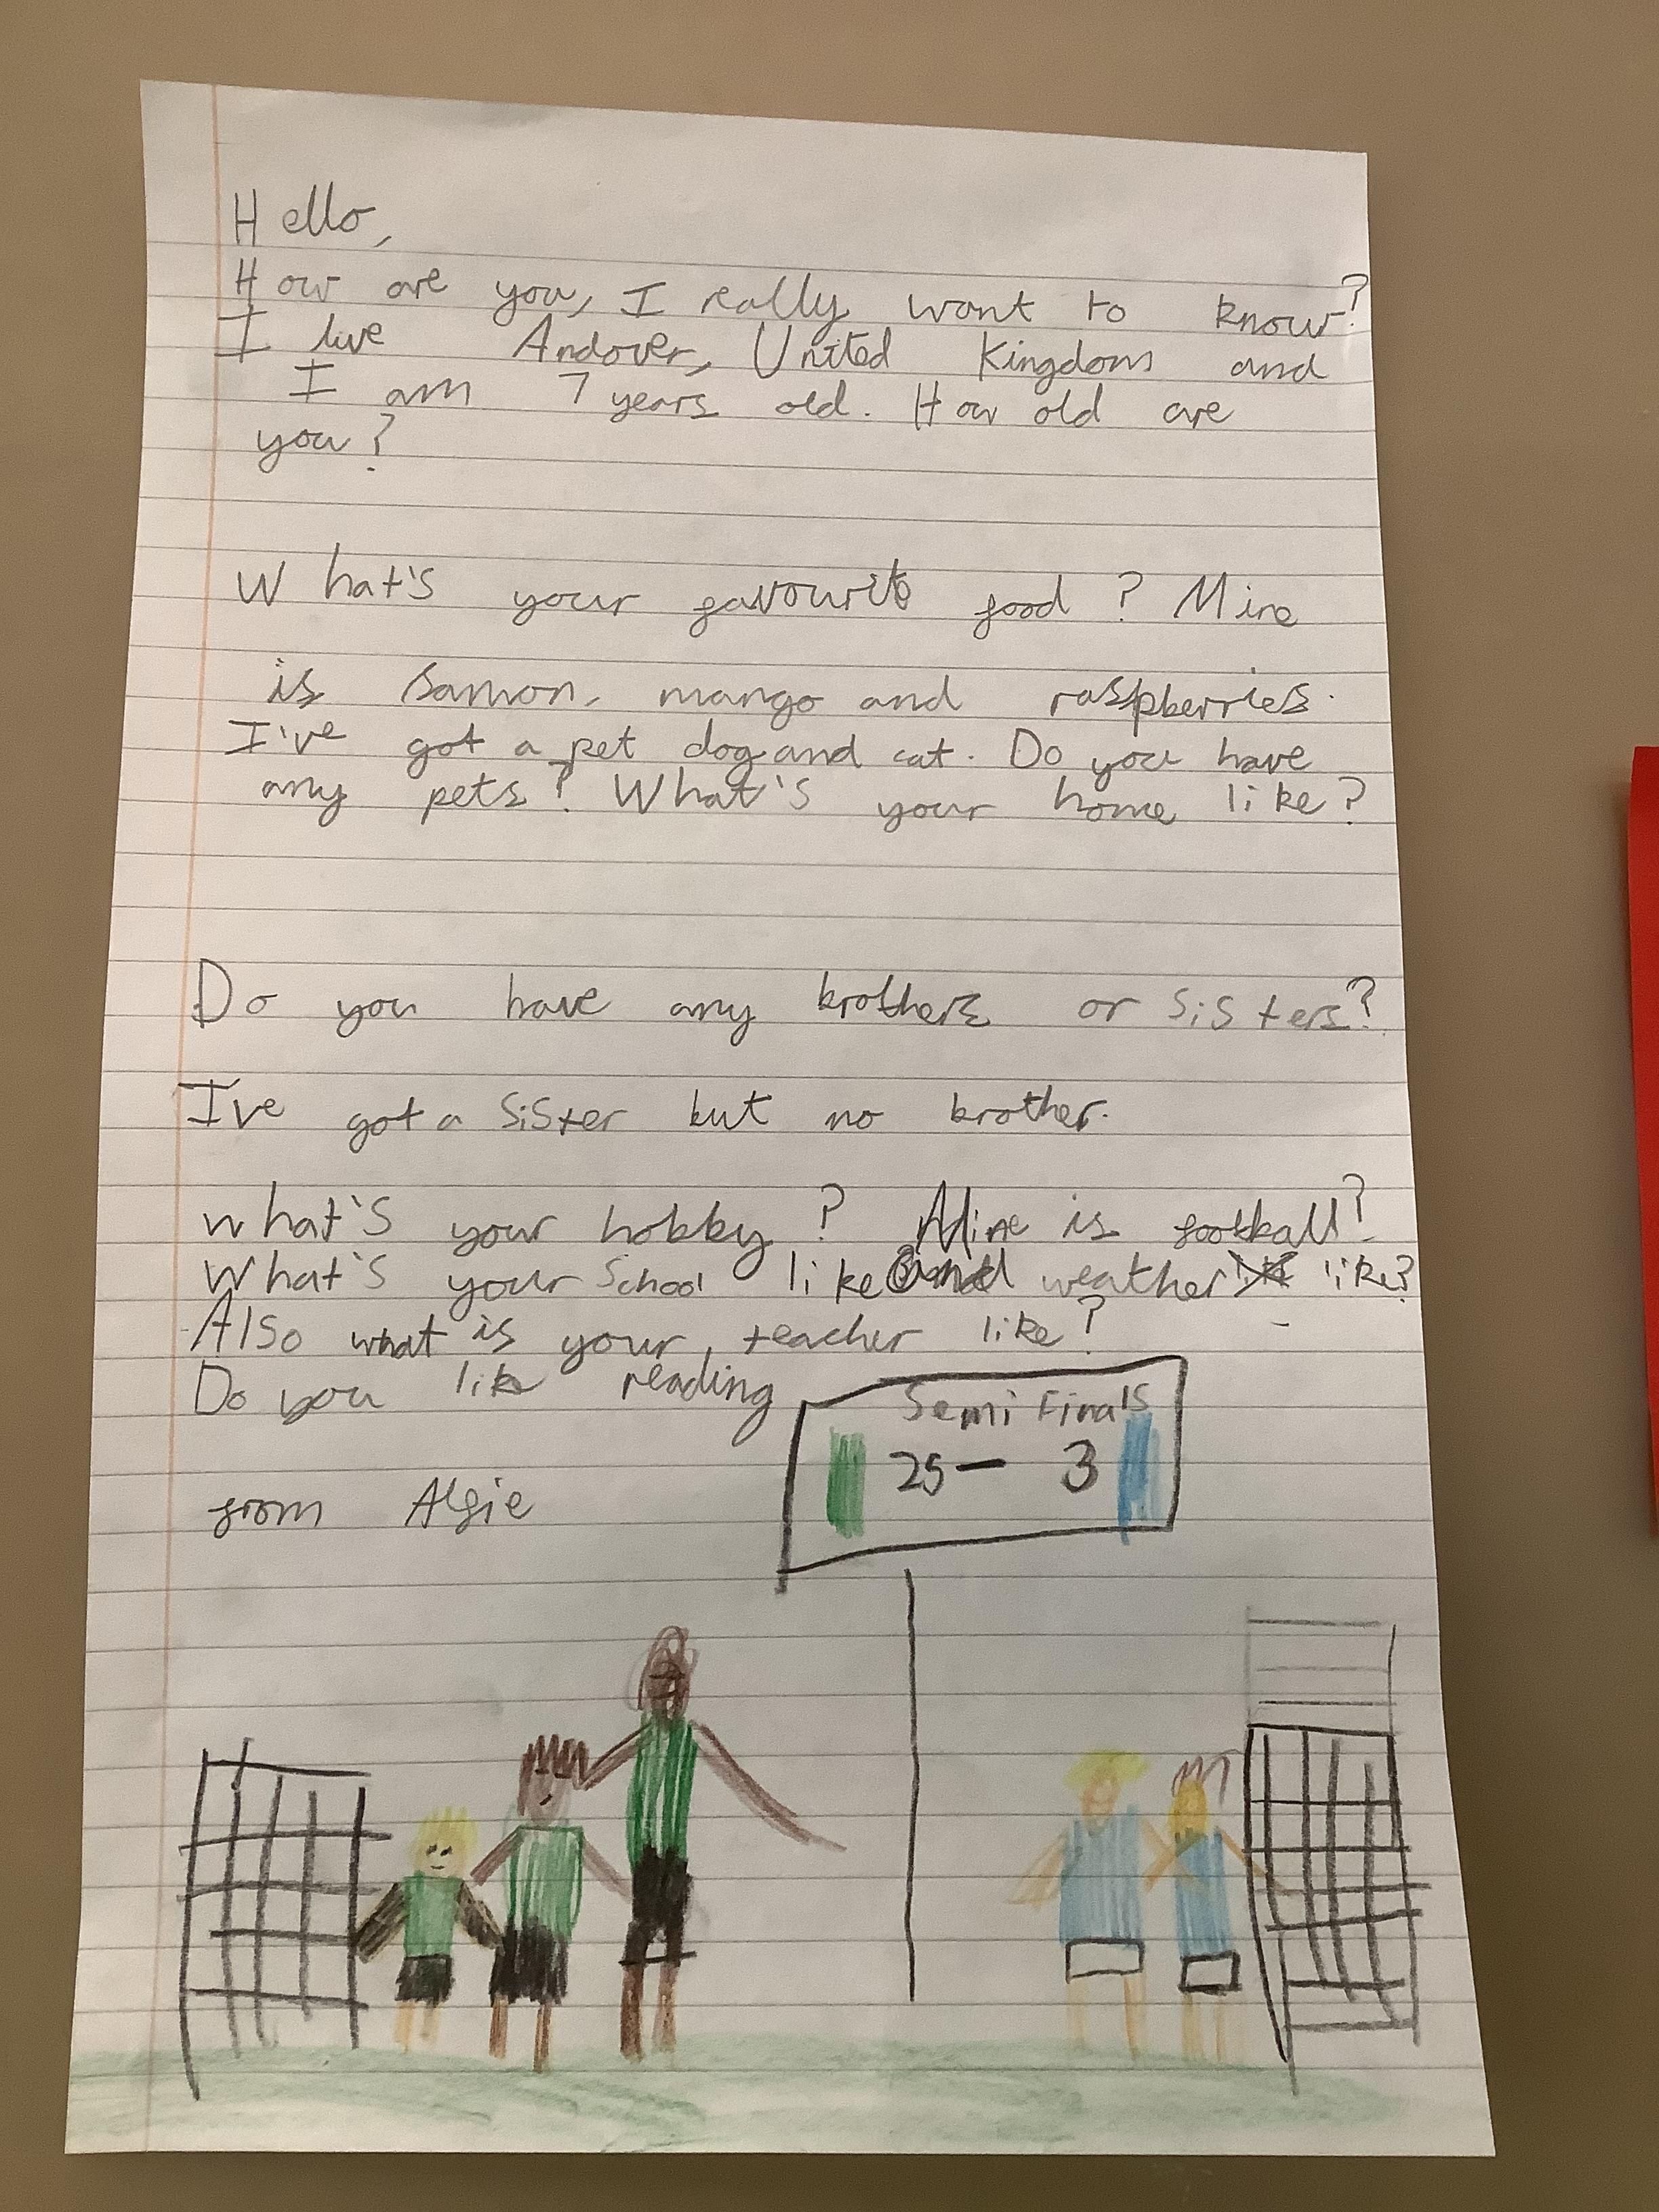 Hello,
How are you, I really want to know?
I live Andover, United Kingdom and
I am 7 years old. How old are
you?
What's your favourite food? Mine
is samon, mango and raspberries.
I've got a pet dog and cat. Do you have
any pets? What's your home like?
Do you have any brothers or sisters?
I've got a sister but no brother.
What's your hobby? Mine is football?
What's your school like and weather like?
Also what is your teacher like?
Do you like reading
Semi Finals
25 - 3
from Algie